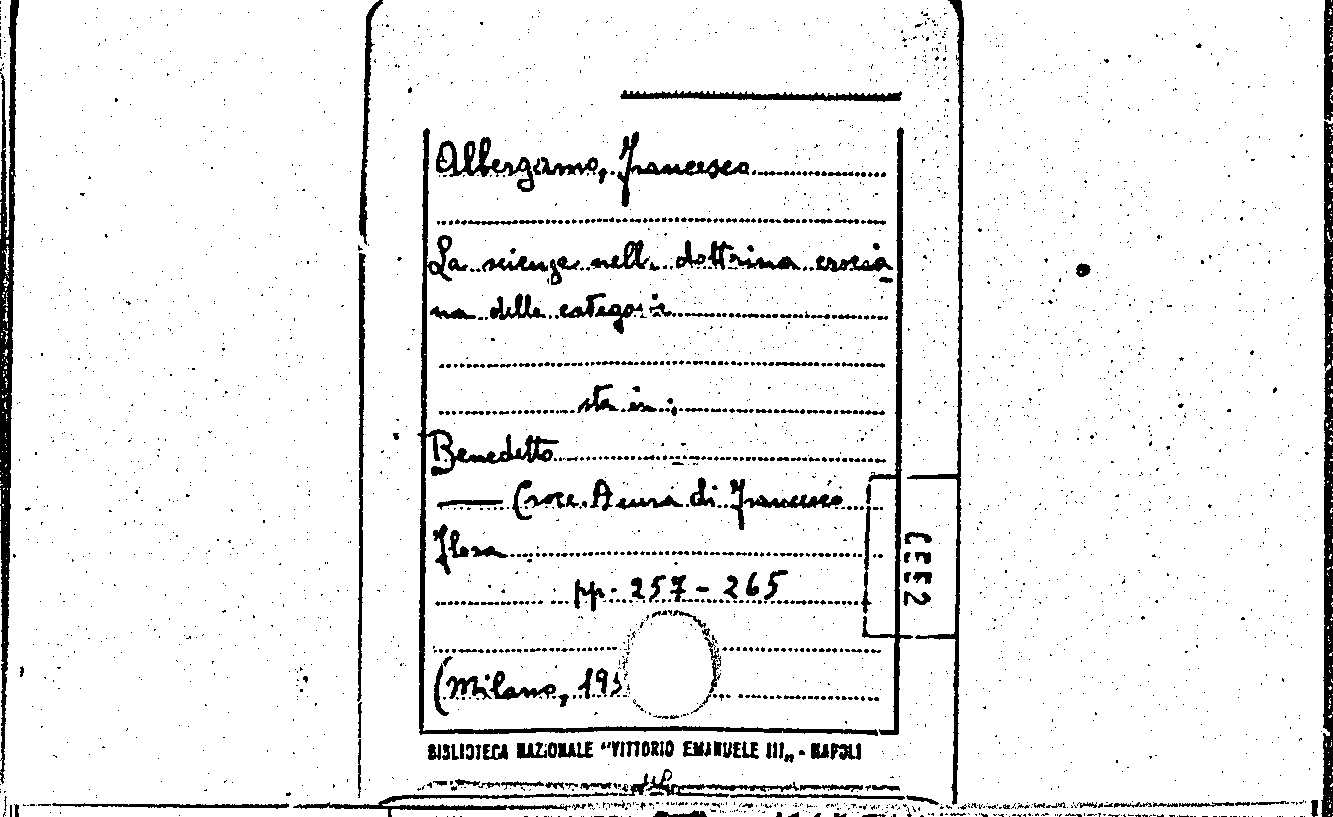 Albergamo, Francesco
La scienza nella dottrina crocia
na delle categorie
sta in:
Benedetto
— Croce. A cura di Francesco
Flora
pp. 257-265
(Milano, 195
BIBLIOTECA NAZIONALE "VITTORIO EMANUELE III„ - NAPOLI